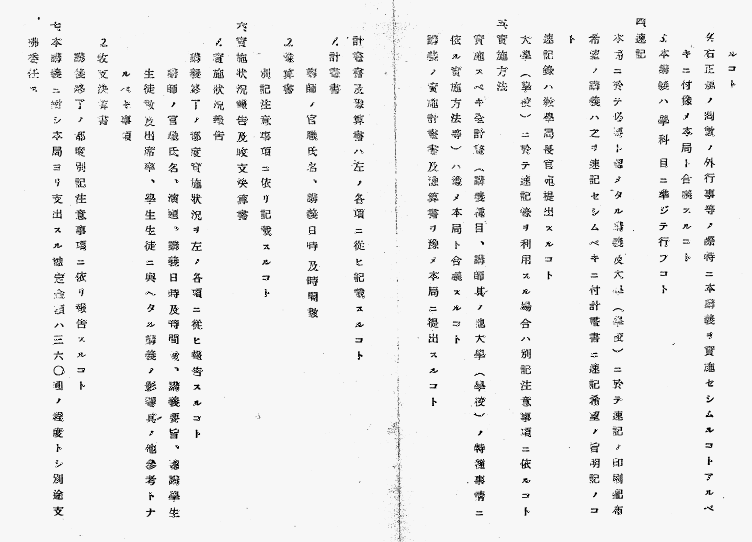 ルコト
4、右正規ノ時數ノ外行事等ノ際特ニ本講義ヲ實施セシムルコトアルベ
キニ付豫メ本局ト合議スルコト
5、本講義ハ學科目ニ準ジテ行フコト
四、速記
本局ニ於テ必要ト認メタル講義及大學(學校)ニ於テ速記ノ印刷配布
希望ノ講義ハ之ヲ速記セシムベキニ付計畫書ニ速記希望ノ旨明記ノコ
ト
速記錄ハ敎學局長官宛提出スルコト
大學(學校)ニ於テ速記錄ヲ利用スル場合ハ別記注意事項ニ依ルコト
五、實施方法
實施スベキ全計畫(講義題目、講師其ノ他大學(學校)ノ特種事情ニ
依ル實施方法等)ハ豫メ本局ト合議スルコト
講義ノ實施計畫書及豫算書ヲ豫メ本局ニ提出スルコト
計畫書及豫算書ハ左ノ各項ニ從ヒ記載スルコト
1、計畫書
講師ノ官職氏名、講義日時及時間數
2、豫算書
別記注意事項ニ依リ記載スルコト
六、實施狀況報告及收支決算書
1、實施狀況報告
講義終了ノ都度實施狀況ヲ左ノ各項ニ從ヒ報告スルコト
講師ノ官職氏名、演題、講義日時及時間數、講義要旨、聽講學生
生徒數及出席率、學生生徒ニ與ヘタル講義ノ影響其ノ他參考トナ
ルベキ事項
2、收支決算書
講義終了ノ都度別記注意事項ニ依リ報告スルコト
七、本講義ニ對シ本局ヨリ支出スル豫定金額ハ三六〇圓ノ程度トシ別途支
拂委任ス